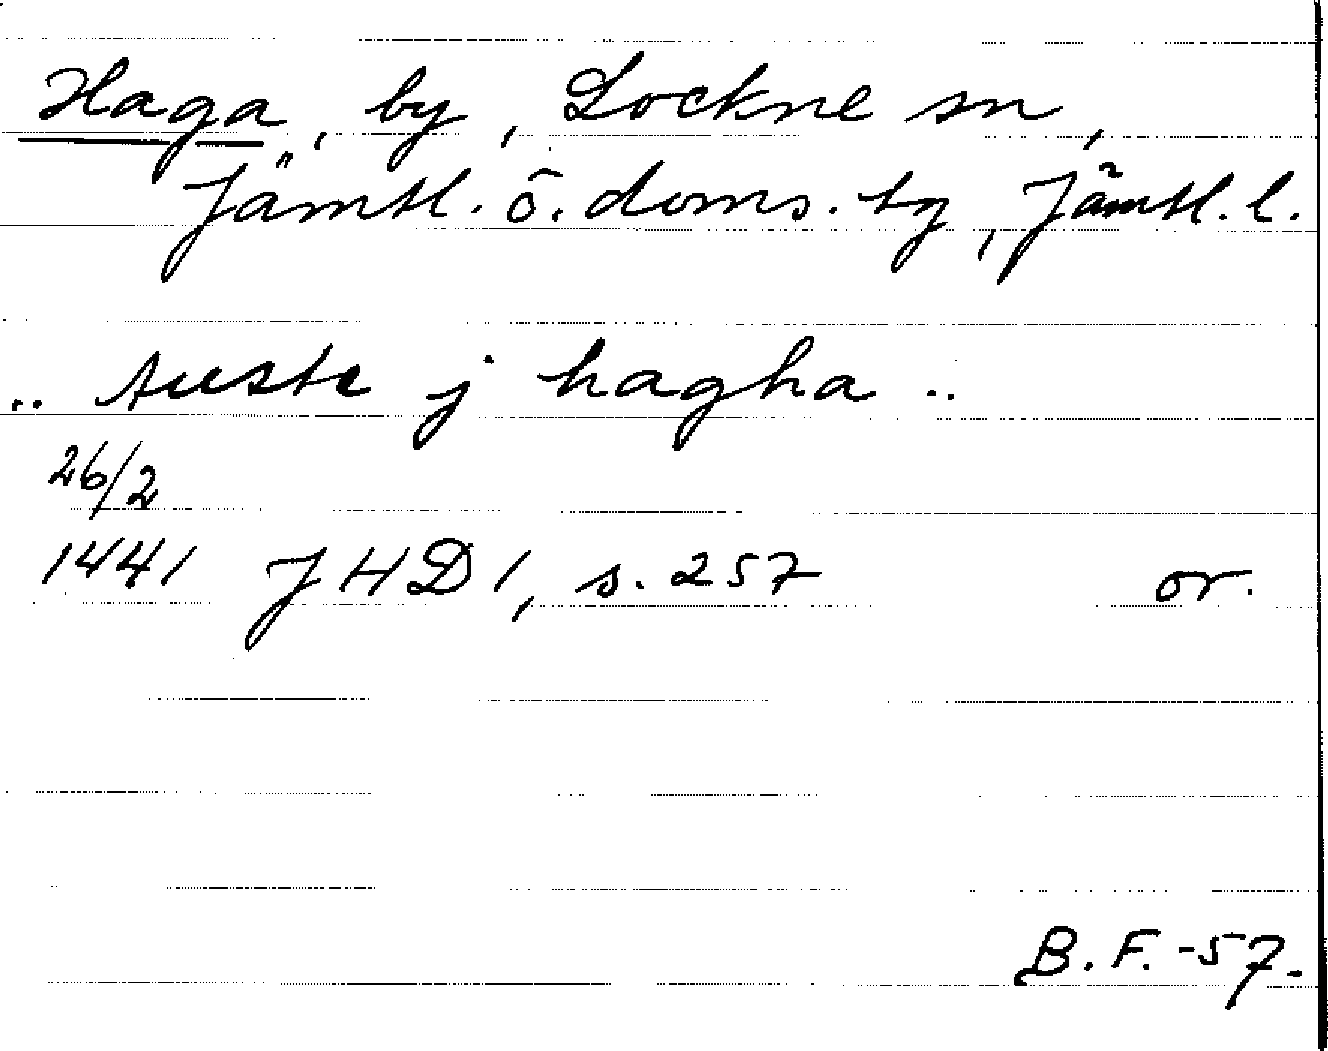 Haga, by, Lockne sn,
Jämtl. ö. doms. tg, Jämtl. l.
.. Auste j hagha ..
26/2
1441 JHD 1, s. 257 or.
B. F. -57.